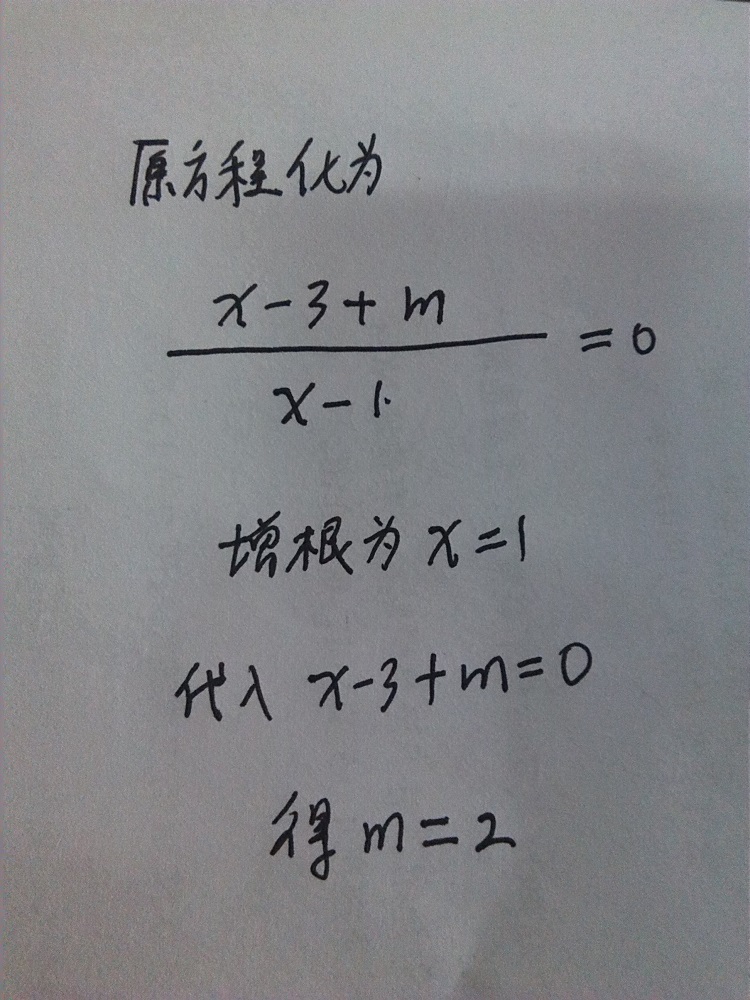 原方程化为
x-3+m
= 0
x-1
增根为 x=1
代入 x-3+m=0
得 m=2